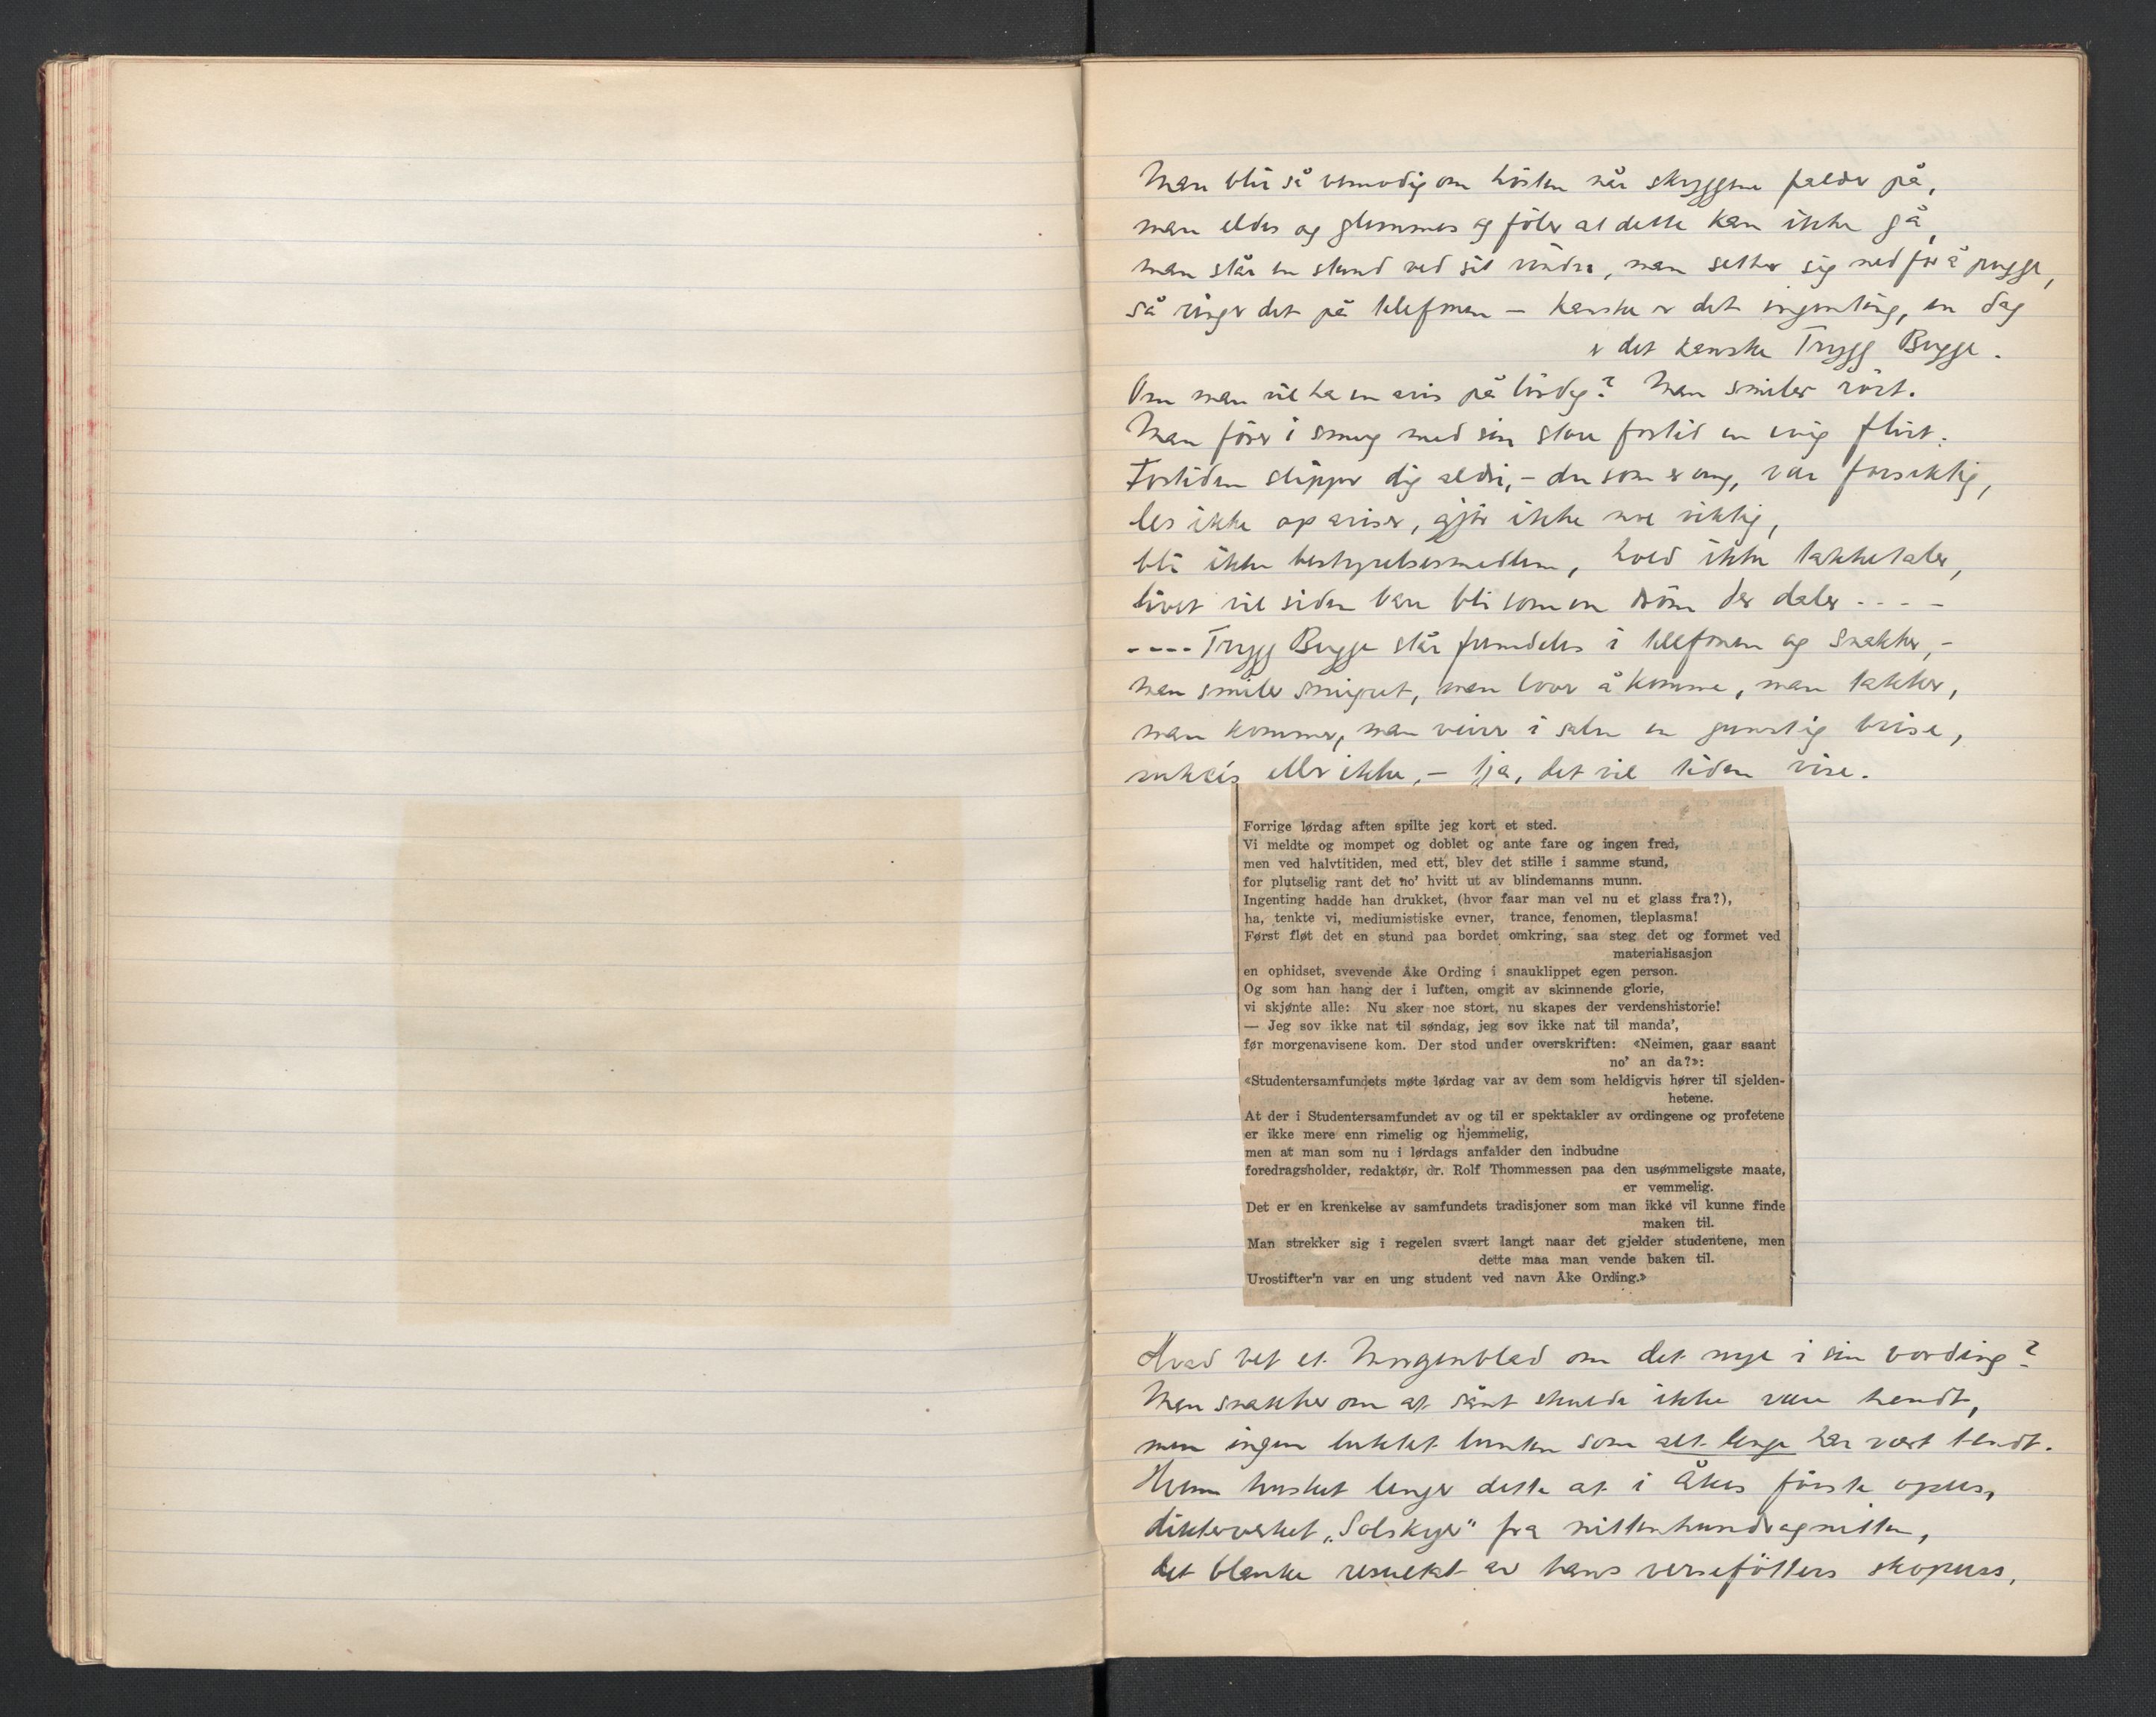 Man blir så vemodig om hösten når skyggene falder på,
man eldes og glemmes og föler at dette kan ikke gå,
man står en stund ved sit vindu, man setter sig ned for å pugge,
så ringer det på telefonen — kanske er det ingenting, en dag
er det kanske Trygg Bugge.
Om man vil ha en avis på lördag? Man smiler rört.
Man förer i smug med sin store fortid en evig flirt.
Fortiden slipper dig aldri, – du som er ung, vær forsiktig,
les ikke op aviser, gjör ikke noe viktig,
bli ikke bestyrelsesmedlem, hold ikke takketaler,
livet vil siden bare bli som en dröm der daler - - - -
- - - - Trygg Bugge står fremdeles i telefonen og snakker, –
man smiler smigret, man lover å komme, man takker,
man kommer, man veirer i salen en gunstig brise,
sukces eller ikke, – tja, det vil tiden vise.
Forrige lørdag aften spilte jeg kort et sted.
Vi meldte og mompet og doblet og ante fare og ingen fred,
men ved halvtitiden, med ett, blev det stille i samme stund,
for plutselig rant det no' hvitt ut av blindemanns munn.
Ingenting hadde han drukket, (hvor faar man vel nu et glass fra?),
ha, tenkte vi, mediumistiske evner, trance, fenomen, tleplasma!
Først fløt det en stund paa bordet omkring, saa steg det og formet ved
materialisasjon
en ophidset, svevende Åke Ording i snauklippet egen person.
Og som han hang der i luften, omgit av skinnende glorie,
vi skjønte alle: Nu sker noe stort, nu skapes der verdenshistorie!
— Jeg sov ikke nat til søndag, jeg sov ikke nat til manda',
før morgenavisene kom. Der stod under overskriften: «Neimen, gaar saant
no' an da?»:
«Studentersamfundets møte lørdag var av dem som heldigvis hører til sjelden-
hetene.
At der i Studentersamfundet av og til er spektakler av ordingene og profetene
er ikke mere enn rimelig og hjemmelig,
men at man som nu i lørdags anfalder den indbudne
foredragsholder, redaktør, dr. Rolf Thommessen paa den usømmeligste maate,
er vemmelig.
Det er en krenkelse av samfundets tradisjoner som man ikke vil kunne finde
maken til.
Man strekker sig i regelen svært langt naar det gjelder studentene, men
dette maa man vende baken til.
Urostifter'n var en ung student ved navn Åke Ording.»
Hvad vet et Morgenblad om det nye i sin vording?
Man snakker om at sånt skulde ikke være hendt,
men ingen lukket lunten som alt lenge har vært tendt.
Hvem husket lenger dette at i Åkes förste opus,
dikterverket „Solskyer" fra nittenhundreognitten,
det blanke resultat av hans versefötters skopuss,